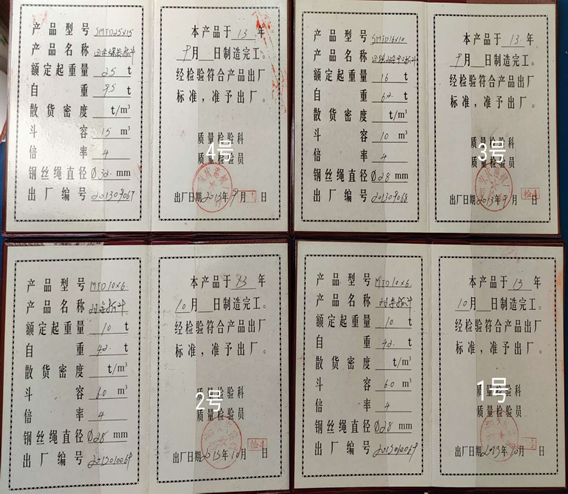 产品型号 SMTD25X15
产品名称
额定起重量 25 t
自重 9.5 t
散货密度 t/m³
斗容 15 m³
倍率 4
钢丝绳直径 Ø32 mm
出厂编号 201309067
本产品于 13 年
9月 日制造完工。
经检验符合产品出厂
标准，准予出厂。
质量检验科
质量检验员
4号
出厂日期2013年9月 日
产品型号 SMTD16X10
产品名称
额定起重量 16 t
自重 6.2 t
散货密度 t/m³
斗容 10 m³
倍率 4
钢丝绳直径 Ø28 mm
出厂编号 201309068
本产品于 13 年
9月 日制造完工。
经检验符合产品出厂
标准，准予出厂。
质量检验科
质量检验员
3号
出厂日期2013年9月 日
产品型号 MTD10X6
产品名称
额定起重量 10 t
自重 4.2 t
散货密度 t/m³
斗容 6.0 m³
倍率 4
钢丝绳直径 Ø28 mm
出厂编号
本产品于 13 年
10月 日制造完工。
经检验符合产品出厂
标准，准予出厂。
质量检验科
质量检验员
2号
出厂日期2013年10月 日
产品型号 MTD10X6
产品名称
额定起重量 10 t
自重 4.2 t
散货密度 t/m³
斗容 6.0 m³
倍率 4
钢丝绳直径 Ø28 mm
出厂编号
本产品于 13 年
10月 日制造完工。
经检验符合产品出厂
标准，准予出厂。
质量检验科
质量检验员
1号
出厂日期2013年10月 日